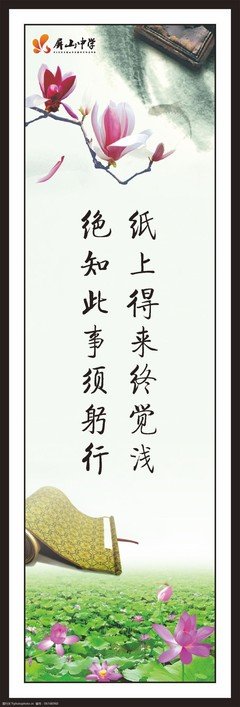 屏山中学
纸上得来终觉浅
绝知此事须躬行